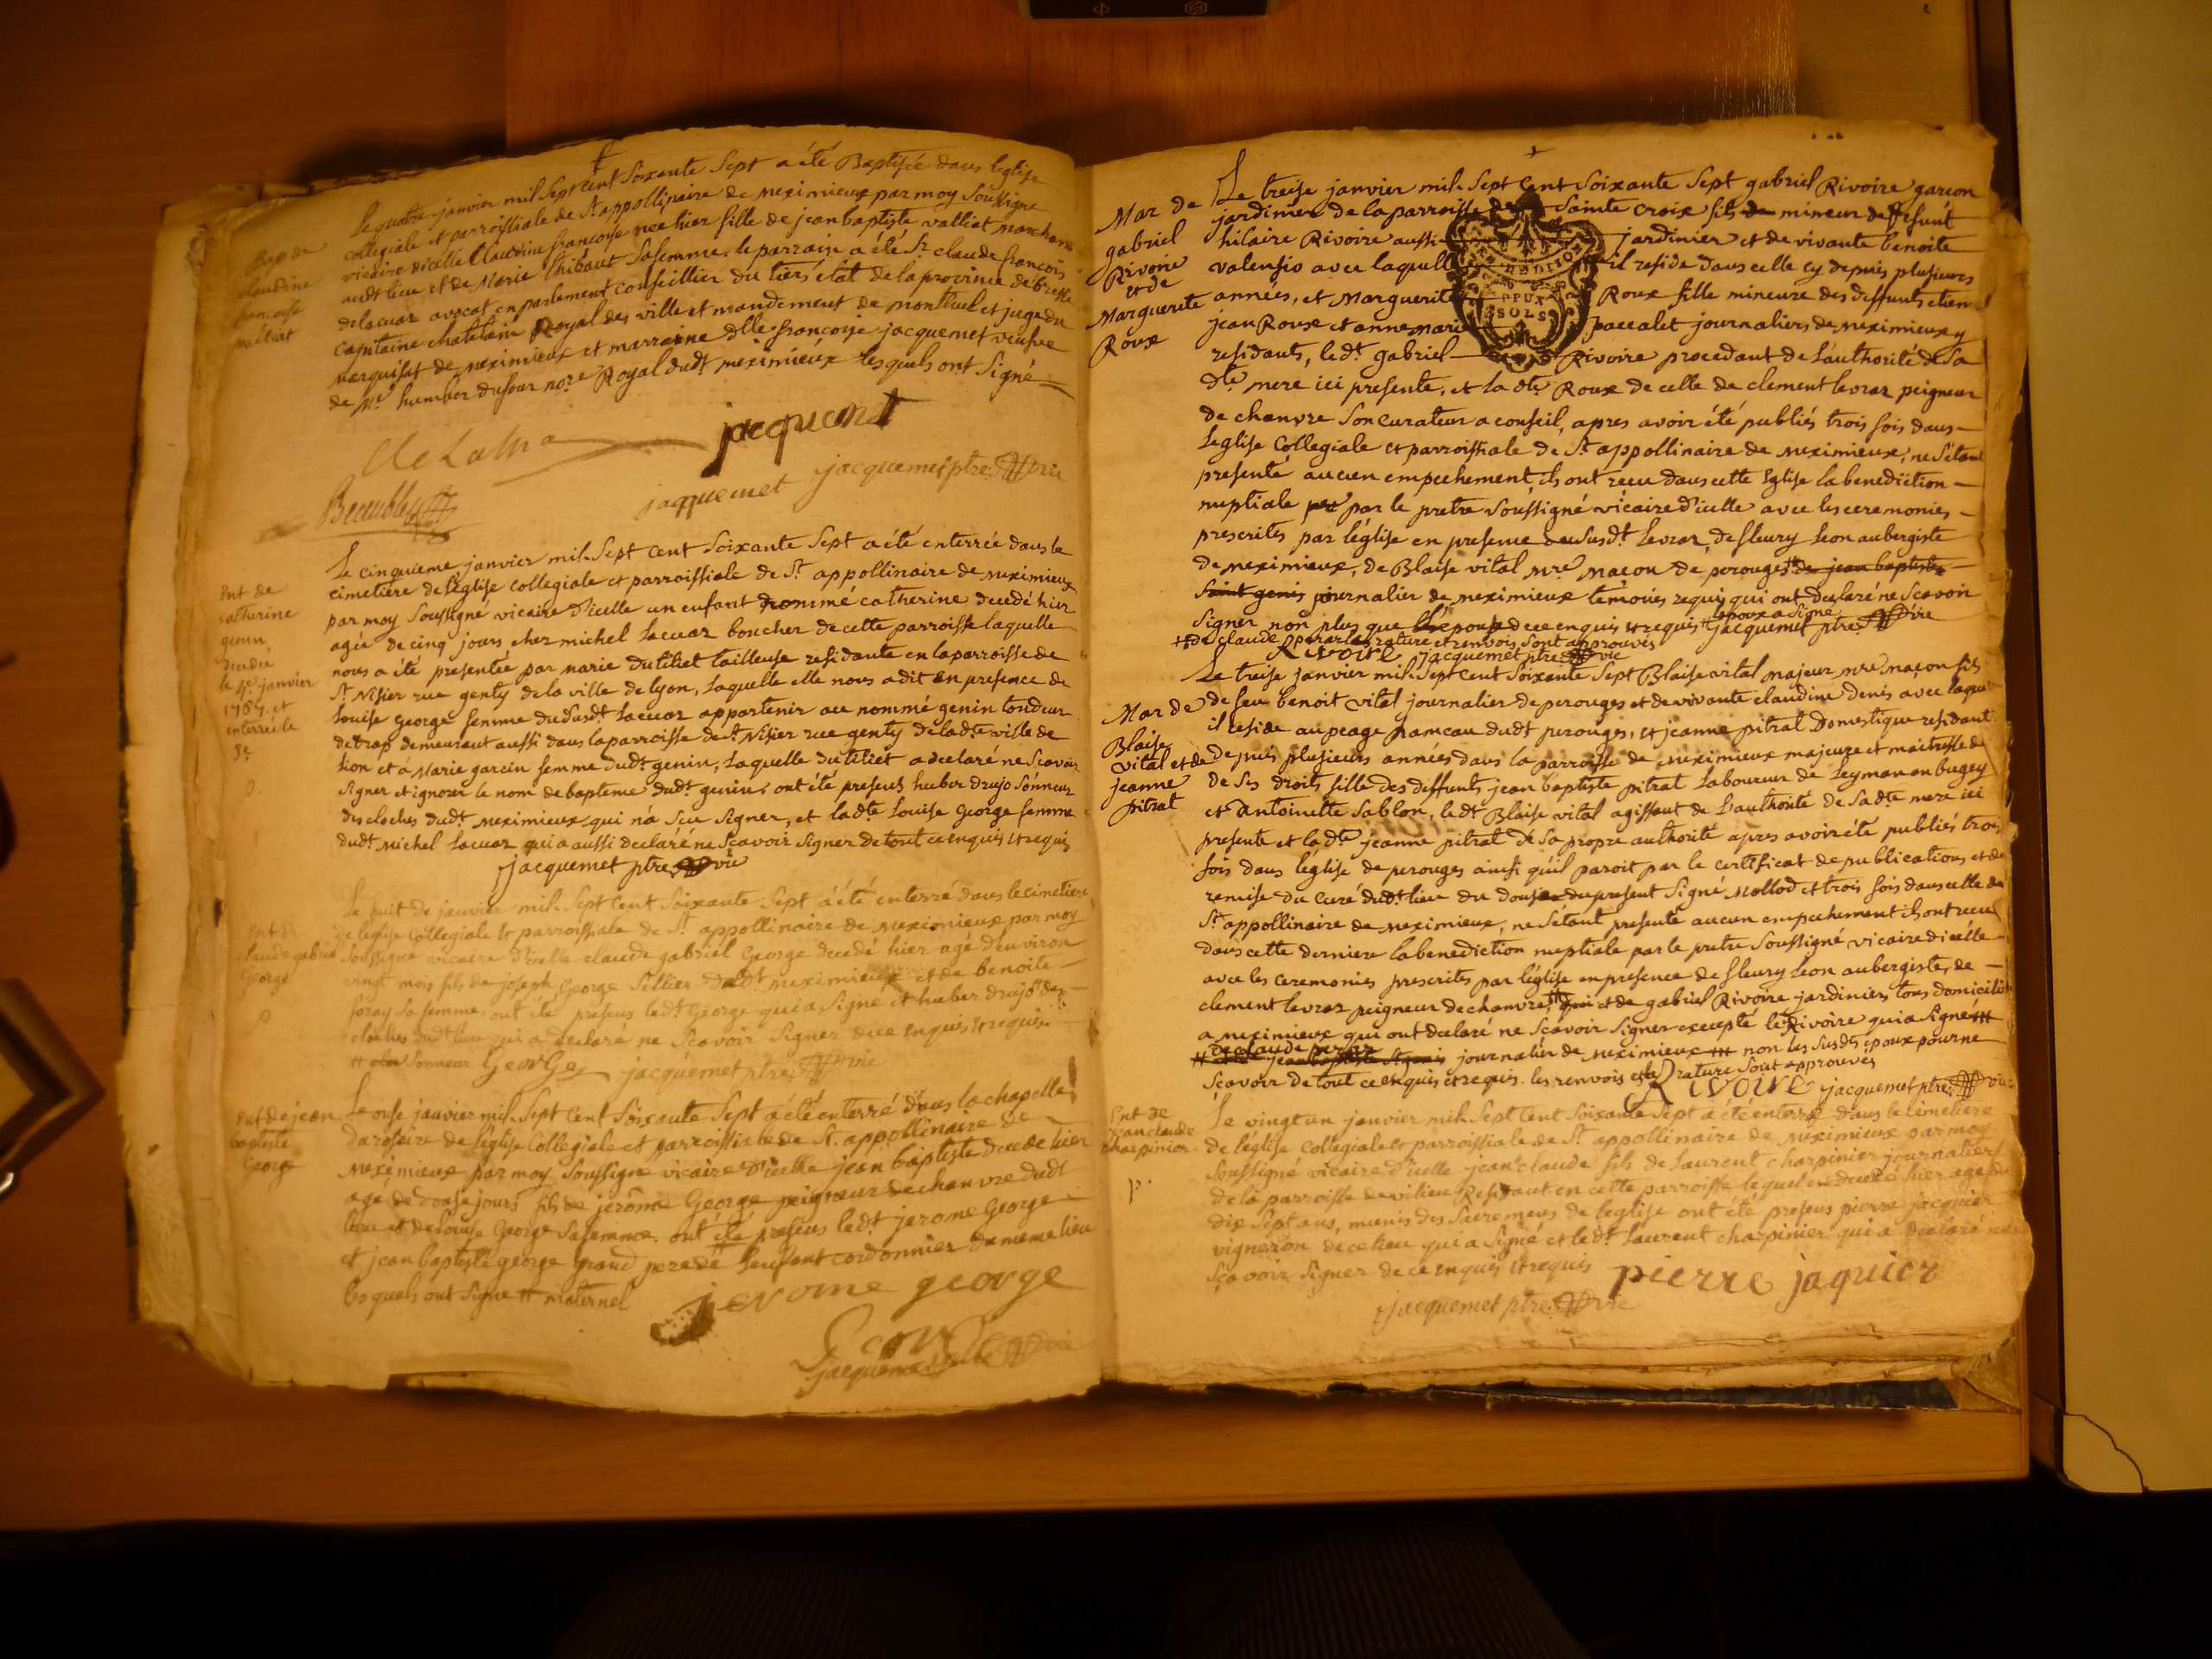 Le quatre janvier mil Sept Cent Soixante Sept a été Baptisée dans leglise
collegiale et parroissiale de St. appollinaire de meximieux par moy Soussigné
vicaire d'icelle Claudine françoise née hier fille de jean baptiste valliat marchand
audt lieu et de Marie Thibaut Sa femme. le parrain a été Sr. claude françois
delacuar avocat en parlement conseillier du tiers état de la province de bresse
capitaine chatelain Royal des ville et mandement de montluel et juge du
marquisat de meximieux et marraine dlle. françoise jacquemet veufve
de Me. humber dufour nore. Royal dudt meximieux lesquels ont Signé
Bap de
claudine
françoise
valliat
jacquemet
jacquemet ptre. vic
Le cinquieme janvier mil Sept Cent Soixante Sept a été enterrée dans le
cimetiere de l'église collegiale et parroissiale de St. appollinaire de meximieux
par moy Soussigné vicaire d'icelle un enfant nommé catherine decedé hier
agée de cinq jours chez michel Lacuar boucher de cette parroisse laquelle
nous a été presentée par marie dutiliet tailleuse residante en la parroisse de
St. Nisier rue genty de la ville de lyon, Laquelle elle nous a dit en presence de
Louise george femme du Susdt. Lacuar appartenir au nommé genin tondeur
de drap demeurant aussi dans la parroisse de St. Nisier rue genty de ladte ville de
lion et a Marie garcin femme dudt. genin, Laquelle dutiliet a declaré ne Scavoir
Signer et ignorer le nom de bapteme dudt. genin, ont été presens huber drujo Sonneur
des cloches dudt meximieux qui n'a Scu Signer, et ladte Louise George femme
dudt. Michel Lacuar qui a aussi declaré ne Scavoir Signer de tout ce enquis et requis
jacquemet ptre. vic
Ent de
catherine
genin
decedée
le 4e. janvier
1767. et
enterrée le
5e.
Le huit de janvier mil Sept Cent Soixante Sept a été enterré dans le cimetiere
de leglise Collegiale et parroissiale de St. appollinaire de meximieux par moy
Soussigné vicaire d'icelle claude gabriel George decedé hier agé d'environ
vingt mois fils de joseph George Sellier dudt meximieux et de benoite
foray Sa femme, ont été presens ledt. George qui a Signé et huber drujo des
cloches dudt lieu qui a declaré ne Scavoir Signer de ce enquis et requis.
Sonneur George jacquemet ptre. vic
Ent d
claude gabriel
George
Le onse janvier mil Sept Cent Soixante Sept a été enterré dans la chapelle
du rosaire de l'église Collegiale et parroissiale de St. appollinaire de
Meximieux par moy Soussigné vicaire d'icelle jean baptiste decedé hier
agé de douse jours fils de jerôme George peigneur de chanvre dudt
lieu et de Louise George Sa femme. ont été presens ledt. jerome George
et jean baptiste george grand pere de lenfant cordonnier du meme lieu
lesquels ont Signé maternel
Ent de jean
baptiste
George
jerome george
George
jacquemet ptre vic
Le treise janvier mil Sept Cent Soixante Sept gabriel Rivoire garcon
jardinier de la parroisse de Sainte Croix fils de mineur de deffunt
hilaire Rivoire aussi jardinier et de vivante benoite
valensio avec laquelle il reside dans celle cy depuis plusieurs
années, et Marguerite Roux fille mineure des deffunts etien
jean Roux et anne marie paccalet journaliers de meximieux y
residants, le dt. gabriel Rivoire procedant de l'authorité de Sa
dte mere ici presente, et la dte Roux de celle de clement levrar peigneur
de chanvre Son curateur a conseil, apres avoir été publiés trois fois dans
Leglise Collegiale et parroissiale de St. appollinaire de meximieux, ne S'etant
presenté aucun empechement, ils ont recu dans cette Eglise la benediction
nuptiale par le pretre Soussigné vicaire d'icelle avec les ceremonies
prescrites par l'église en presence du Susdt. Levrar, de fleury Leon aubergiste
de meximieux, de Blaise vital mre. macon de perouges de jean baptiste
Saint genis journalier de meximieux temoins requis qui ont declaré ne Scavoir
Signer non plus que l'epouse de ce enquis et requis l'epoux a Signé jacquemet ptre. vic
de claude perrar les rature et renvois Sont approuvés
Rivoire jacquemet ptre. vic
Mar de
gabriel
Rivoire
et de
Marguerite
Roux
DEUX
SOLS
Le treise janvier mil Sept Cent Soixante Sept Blaise vital majeur mre macon fils
de feu benoit vital journalier de perouges et de vivante claudine denis avec laque
il reside au peage hameau dudt perouges, et jeanne pitrat Domestique residant
depuis plusieurs années dans la parroisse de meximieux majeure et maitresse de
de Ses droits fille des deffunts jean baptiste pitrat Laboureur de Leyman en bugey
et antoinette Sablon, ledt Blaise vital agissant de L'authorité de Sa dte mere ici
presente et la dte jeanne pitrat de Sa propre authorité apres avoir été publiés trois
fois dans leglise de perouges ainsi qu'il paroit par le certificat de publications et de
remise du Curé dudt lieu du douse du present Signé Mollod et trois fois dans celle de
St. appollinaire de meximieux, ne Sétant presenté aucun empechement ils ont recu
dans cette derniere la benediction nuptiale par le pretre Soussigné vicaire d'icelle
avec les ceremonies prescrites par léglise en presence de fleury Leon aubergiste, de
clement levrar peigneur de chanvre, et de gabriel Rivoire jardinier tous domiciliés
a meximieux qui ont declaré ne Scavoir Signer excepté le Rivoire qui a Signé
de claude perrar journalier de meximieux non les Susdts epoux pour ne
Scavoir de tout ce enquis et requis. les renvois et la rature Sont approuvés
Rivoire jacquemet ptre. vic
Mar de
Blaise
vital et de
jeanne
pitrat
Le vingt un janvier mil Sept Cent Soixante Sept a été enterré dans le cimetiere
de l'église Collegiale et parroissiale de St. appollinaire de meximieux par moy
Soussigné vicaire d'icelle jean claude fils de Laurent charpinier journalier
de la parroisse de vilieu Residant en cette parroisse lequel est decedé hier agé de
dix Sept ans, munis des Sacremens de leglise ont été presens pierre jacquier
vigneron de ce lieu qui a Signé et ledt. Laurent charpinier qui a declaré ne
Scavoir Signer de ce enquis et requis pierre jaquier
jacquemet ptre. vic
Ent de
jean claude
charpinier
p.